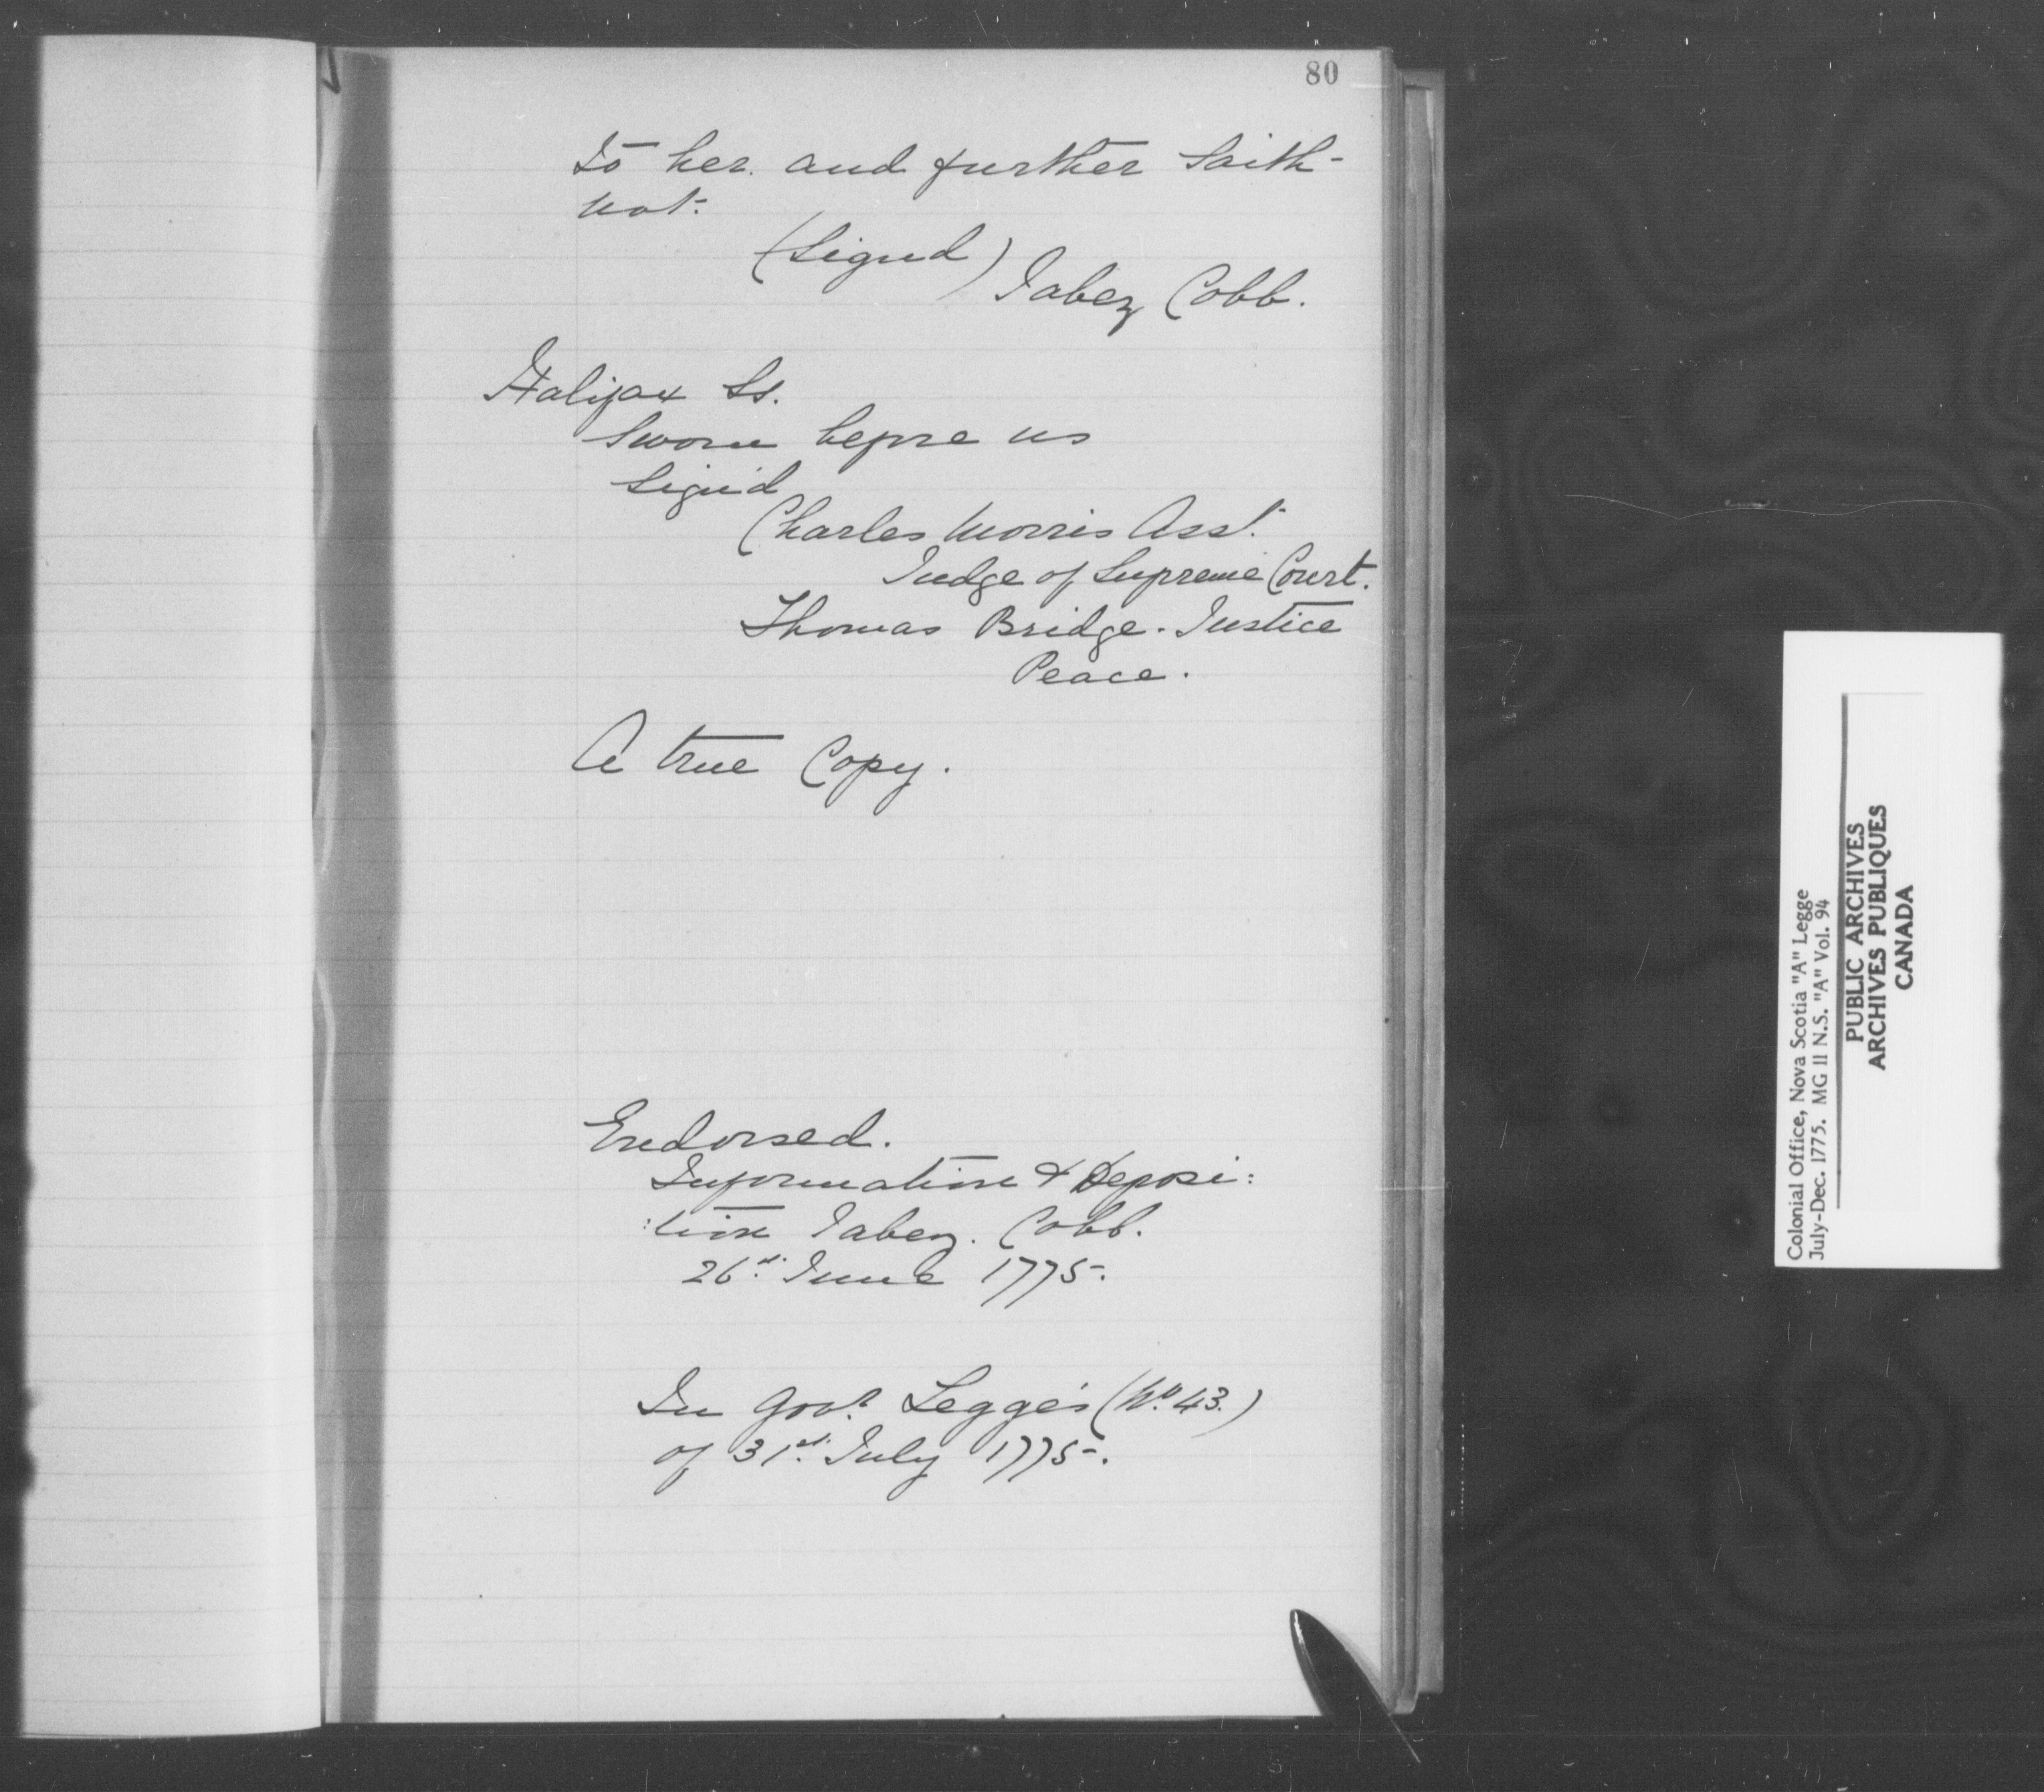 80
to her. and further saith
not.
(Signd)
Jabez Cobb.
Halifax Ss.
Sworn before us
Sign'd
Charles Morris Asst.
Judge of Supreme Court.
Thomas Bridge. Justice
Peace.
A true Copy.
Endorsed.
Information & Deposi:
:tion Jabez. Cobb.
26th. June 1775.
In Govr. Legge's (No. 43.)
of 31st. July 1775.
Colonial Office, Nova Scotia "A" Legge
July-Dec. 1775. MG 11 N.S. "A" Vol. 94
PUBLIC ARCHIVES
ARCHIVES PUBLIQUES
CANADA